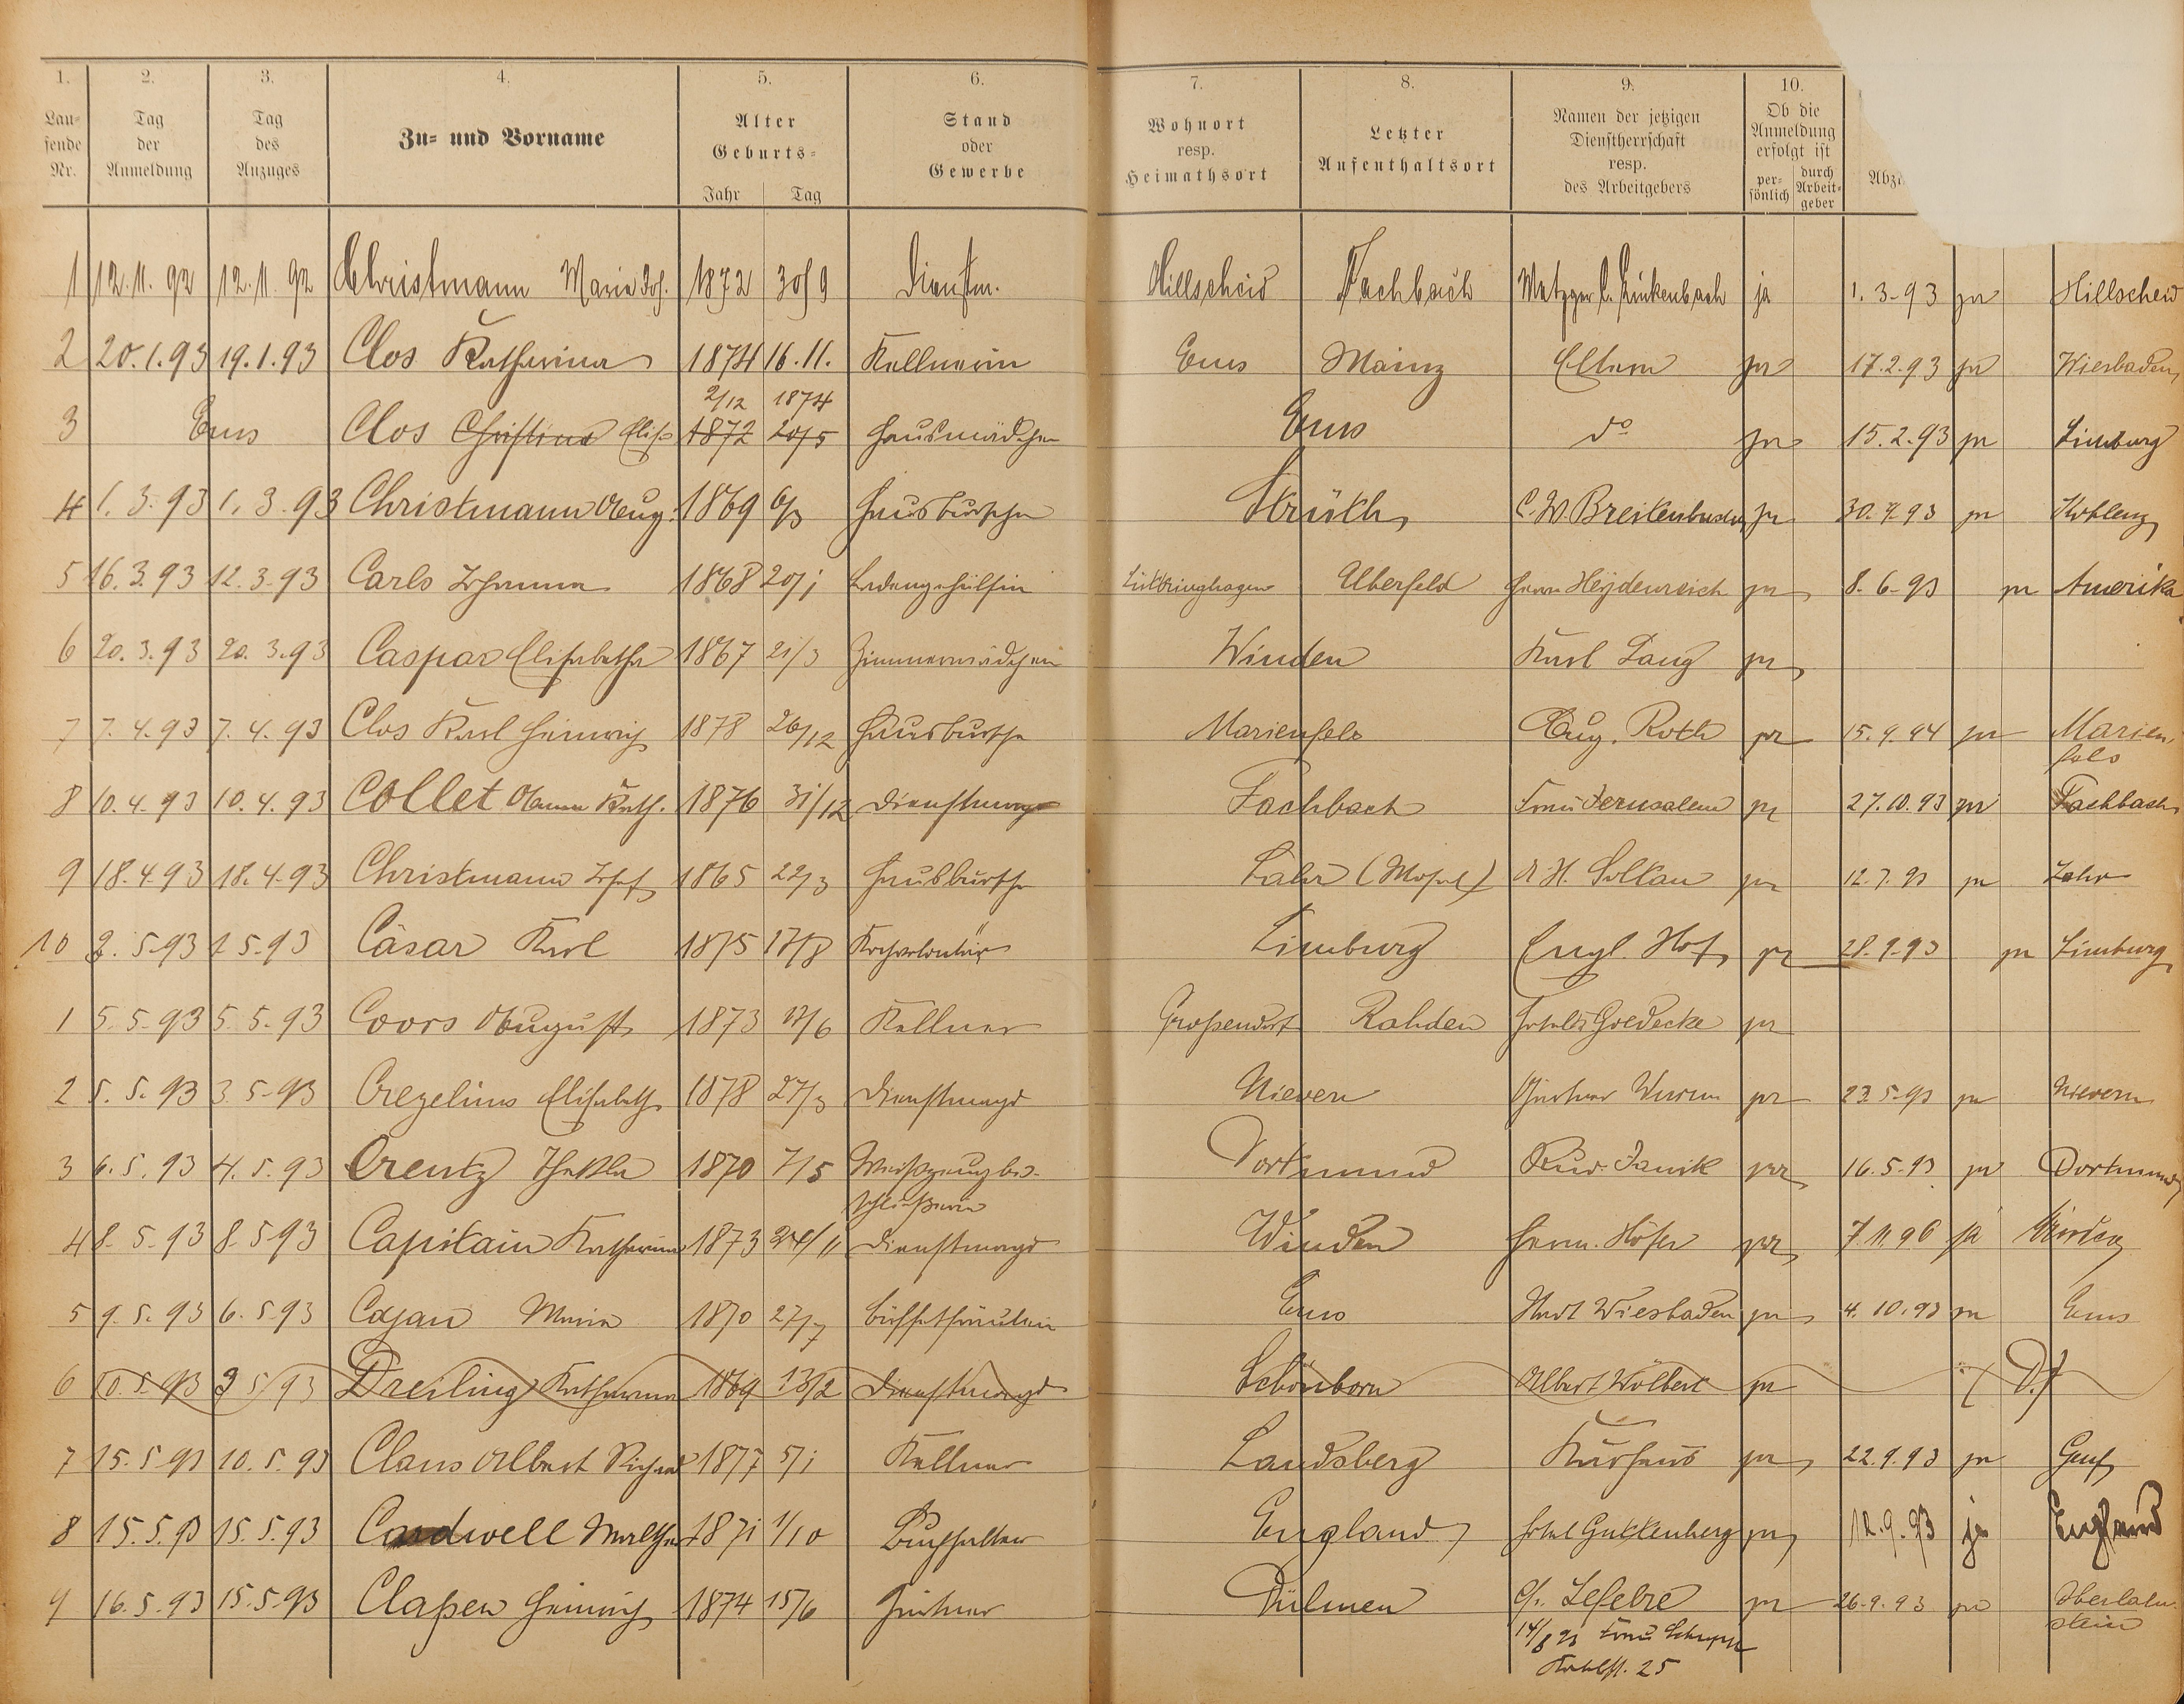 1. 2. 3. 4. 5. 6. 7. 8. 9. 10.
Lau-
fende
Nr.
Tag
der
Anmeldung
Tag
des
Anzuges
Zu- und Vorname
Alter
Geburts-
Jahr Tag
Stand
oder
Gewerbe
Wohnort
resp.
Heimathsort
Letzter
Aufenthaltsort
Namen der jetzigen
Dienstherrschaft
resp.
des Arbeitgebers
Ob die
Anmeldung
erfolgt ist
per-
sönlich
durch
Arbeit-
geber
Abz
1 12.11.92 12.11.92 Christmann Maria Jos. 1872 30/9 Dienstm. Hillscheid Fachbach Metzger ja 1.3-93 ja Hillscheid
2 20.1.93 19.1.93 Clos Katharina 1874 16.11. Kellnerin Ems Mainz Eltern ja 17.2.93 ja Wiesbaden
2/12 1874
3 Ems Clos Christina Elise 1872 20/5 Hausmädchen Ems do ja 15.2.93 ja Limburg
4 1.3.93 1.3.93 Christmann Aug. 1869 6/3 Hausbursche Strüth C. W. Breitenbach ja 30.9.93 ja Koblenz
5 16.3.93 12.3.93 Carls Johanna 1868 20/1 Ladengehülfin Lüttringhagen Elberfeld Herm Heydenreich ja 8.6-93 ja Amerika
6 20.3.93 20.3.93 Caspar Elisabetha 1867 21/3 Zimmermädchen Winden Karl Lang ja
7 7.4.93 7.4.93 Clos Karl Heinrich 1878 26/12 Hausbursche Marienfels Aug. Roth ja 15.9.94 ja Marien,
fels
8 10.4.93 10.4.93 Collet Anna Kath. 1876 31/12 Dienstmagd Fachbach Frau Jerusalem ja 27.10.93 ja Fachbach
9 18.4.93 18.4.93 Christmann Josef 1865 22/3 Hausbursche Lahr (Mosel) A H. Soltau ja 12.7.93 ja Lahr
10 2.5-93 2.5-93 Cäsar Karl 1875 17/8 Kochvolontär Limburg Engl. Hof ja 28.9-93 ja Limburg
1 5.5-93 5.5-93 Coors August 1873 17/6 Kellner Großendorf Rahden Goedecke ja
2 5.5.93 3.5-93 Crezelius Elisabeth 1878 27/3 Dienstmagd Nievern Gärtner Wurm ja 23.5-93 ja Nievern
3 6.5.93 4.5.93 Creutz Thekla 1870 7/5 Weißzeugbe-
schließerin Dortmund Rud. Janik ja 16.5-93 ja Dortmund
4 8.5-93 8.5.93 Capitain Katharina 1873 24/11 Dienstmagd Winden Herm. Höfer ja 7.11.96 ja Winden
5 9.5.93 6.5.93 Cajan Maria 1870 27/7 Büffetfräulein Ems Stadt Wiesbaden ja 4.10.93 ja Ems
6 10.5.93 9.5.93 Dreiling Katharina 1869 13/2 Dienstmagd Schönborn Albert Wölbert ja ( D. )
7 15.5.93 10.5.93 Claus Albert Richard 1877 5/1 Kellner Landsberg Kurhaus ja 22.9.93 ja Genf
8 15.5.93 15.5.93 Cardwell Walther 1871 1/10 Buchhalter England Hotel Guttenberg ja 12.9.93 ja England
9 16.5.93 15.5.93 Claßen Heinrich 1874 15/6 Gärtner Dülmen Lefebre ja 26.9.93 ja Oberlahn-
stein
14/6 93 Frau
25